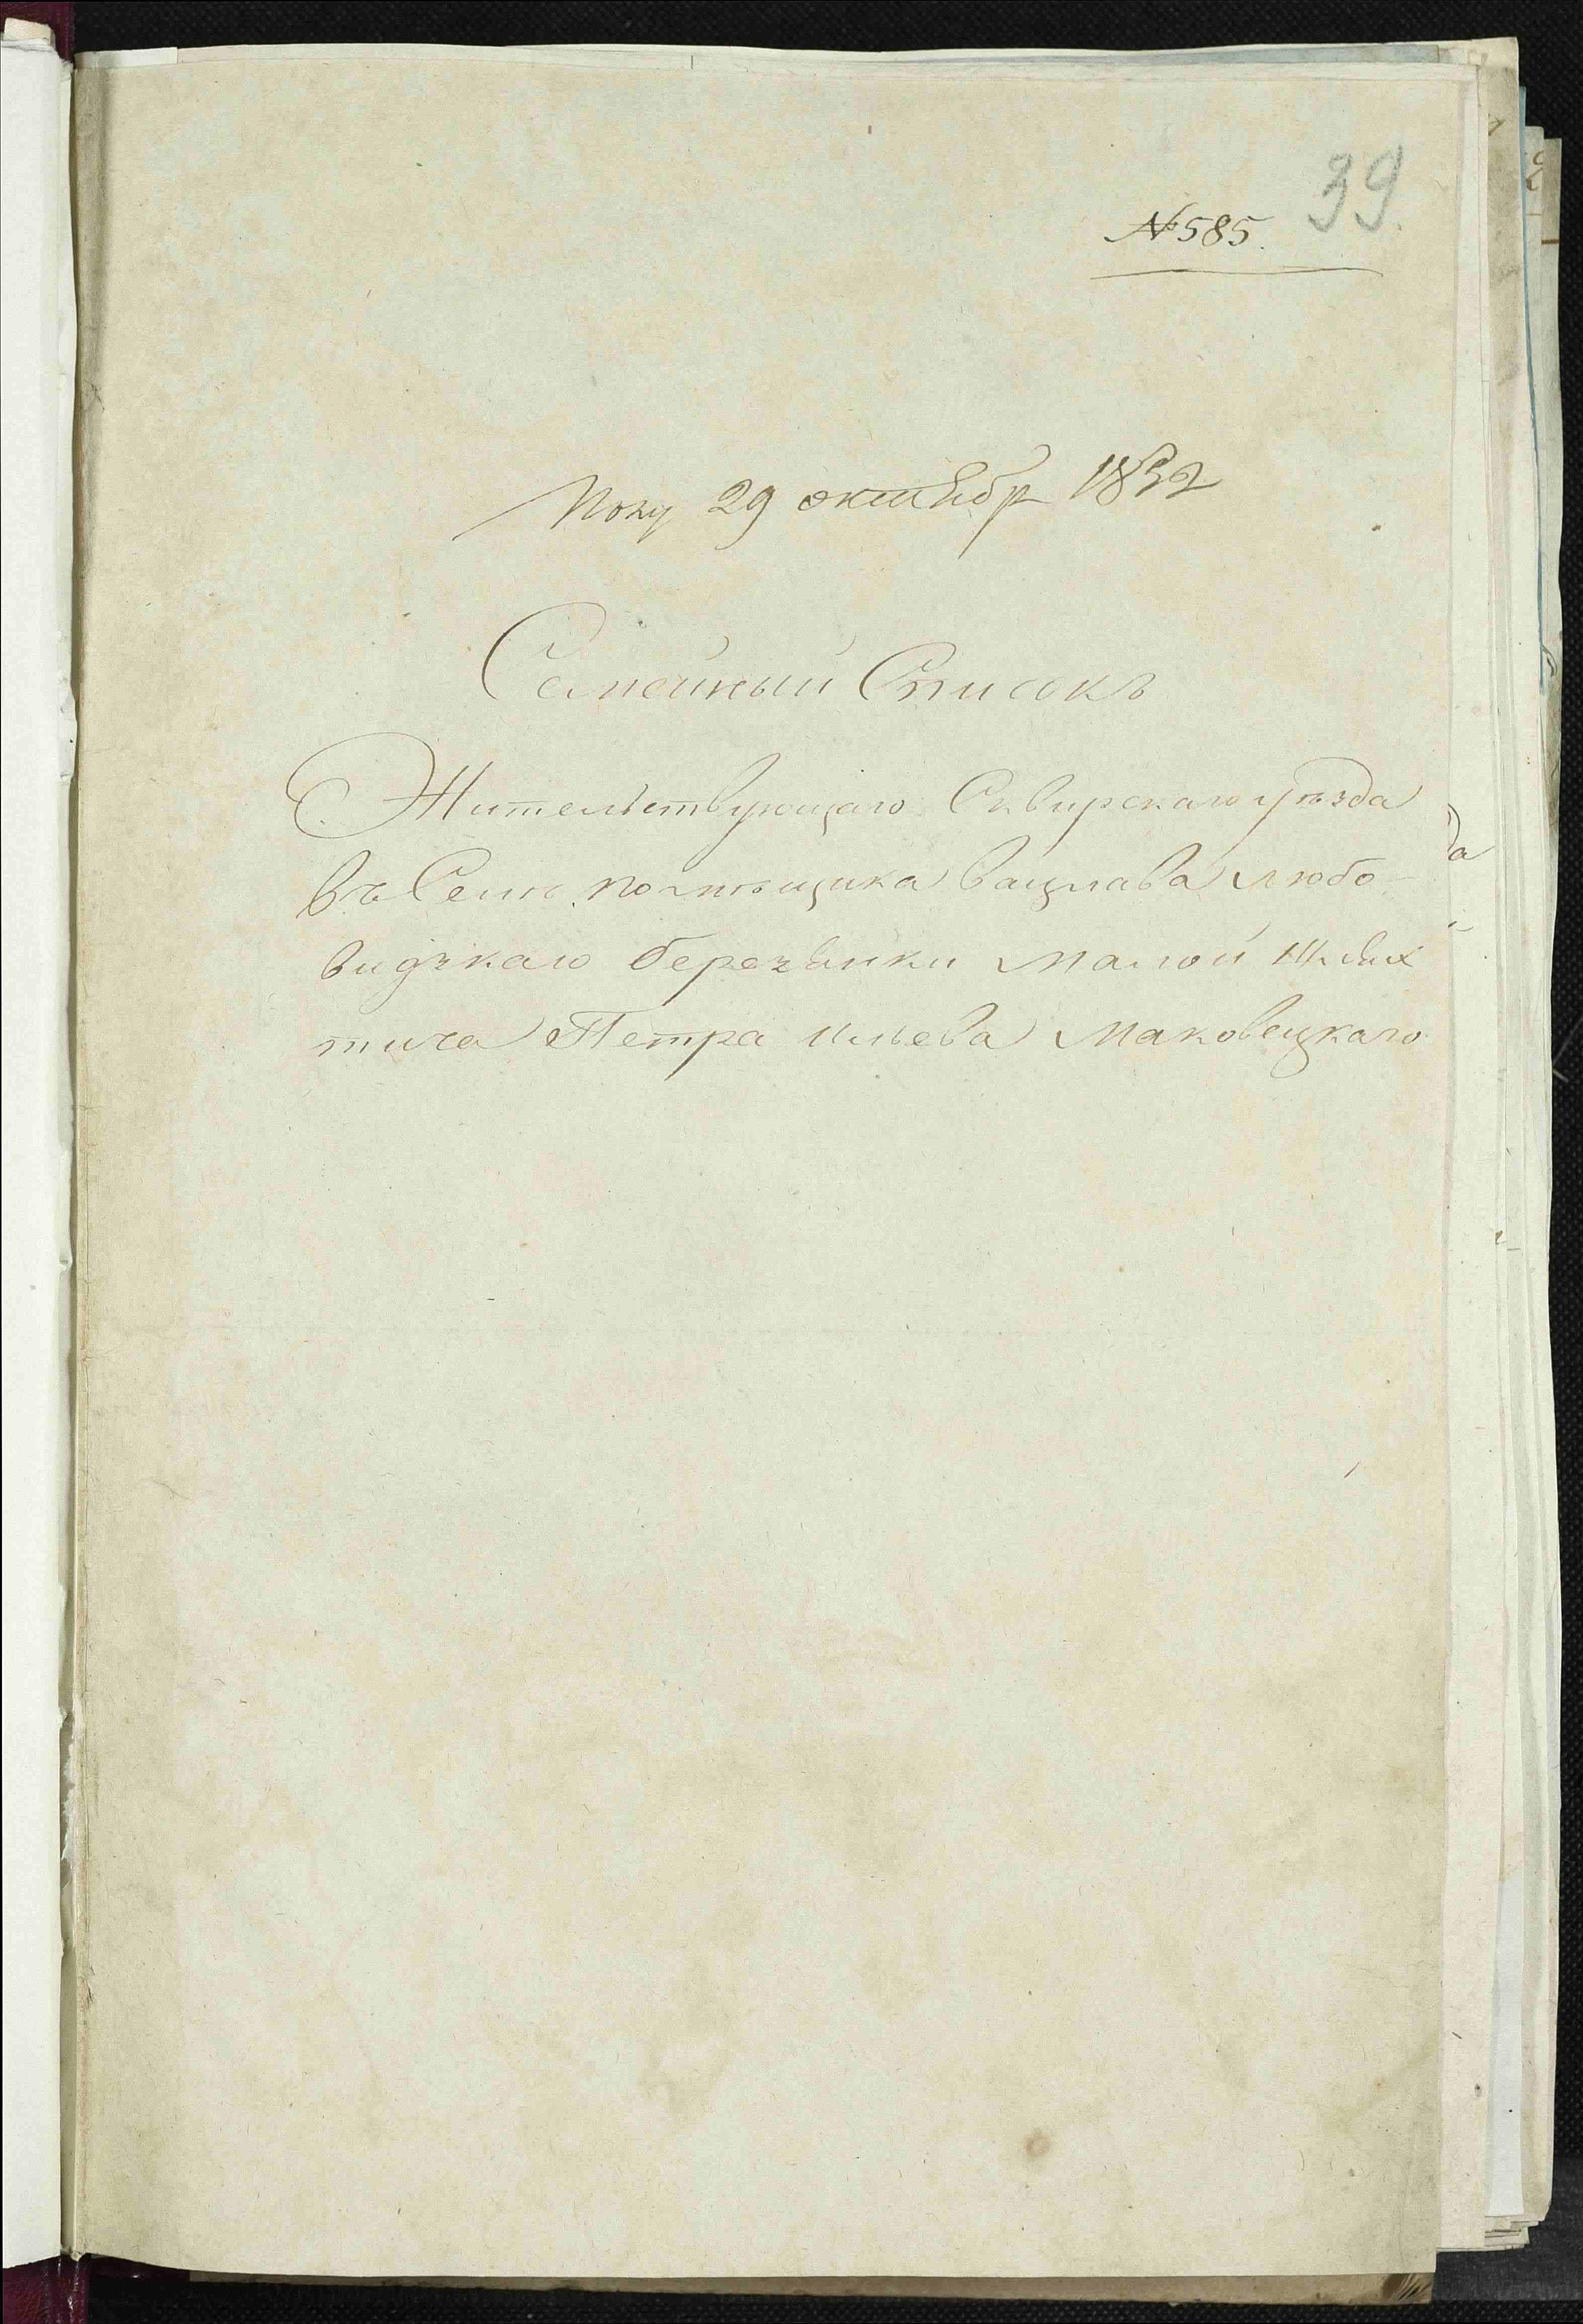 39
№ 585.
Полу 29 октября 1832
Семейный Список
Жительствующаго Сквирскаго уезда
въ Селѣ помѣщика Вацлава Любо-
видзкаго березянки малой Шлях
тича Петра Ильева Маковецкаго